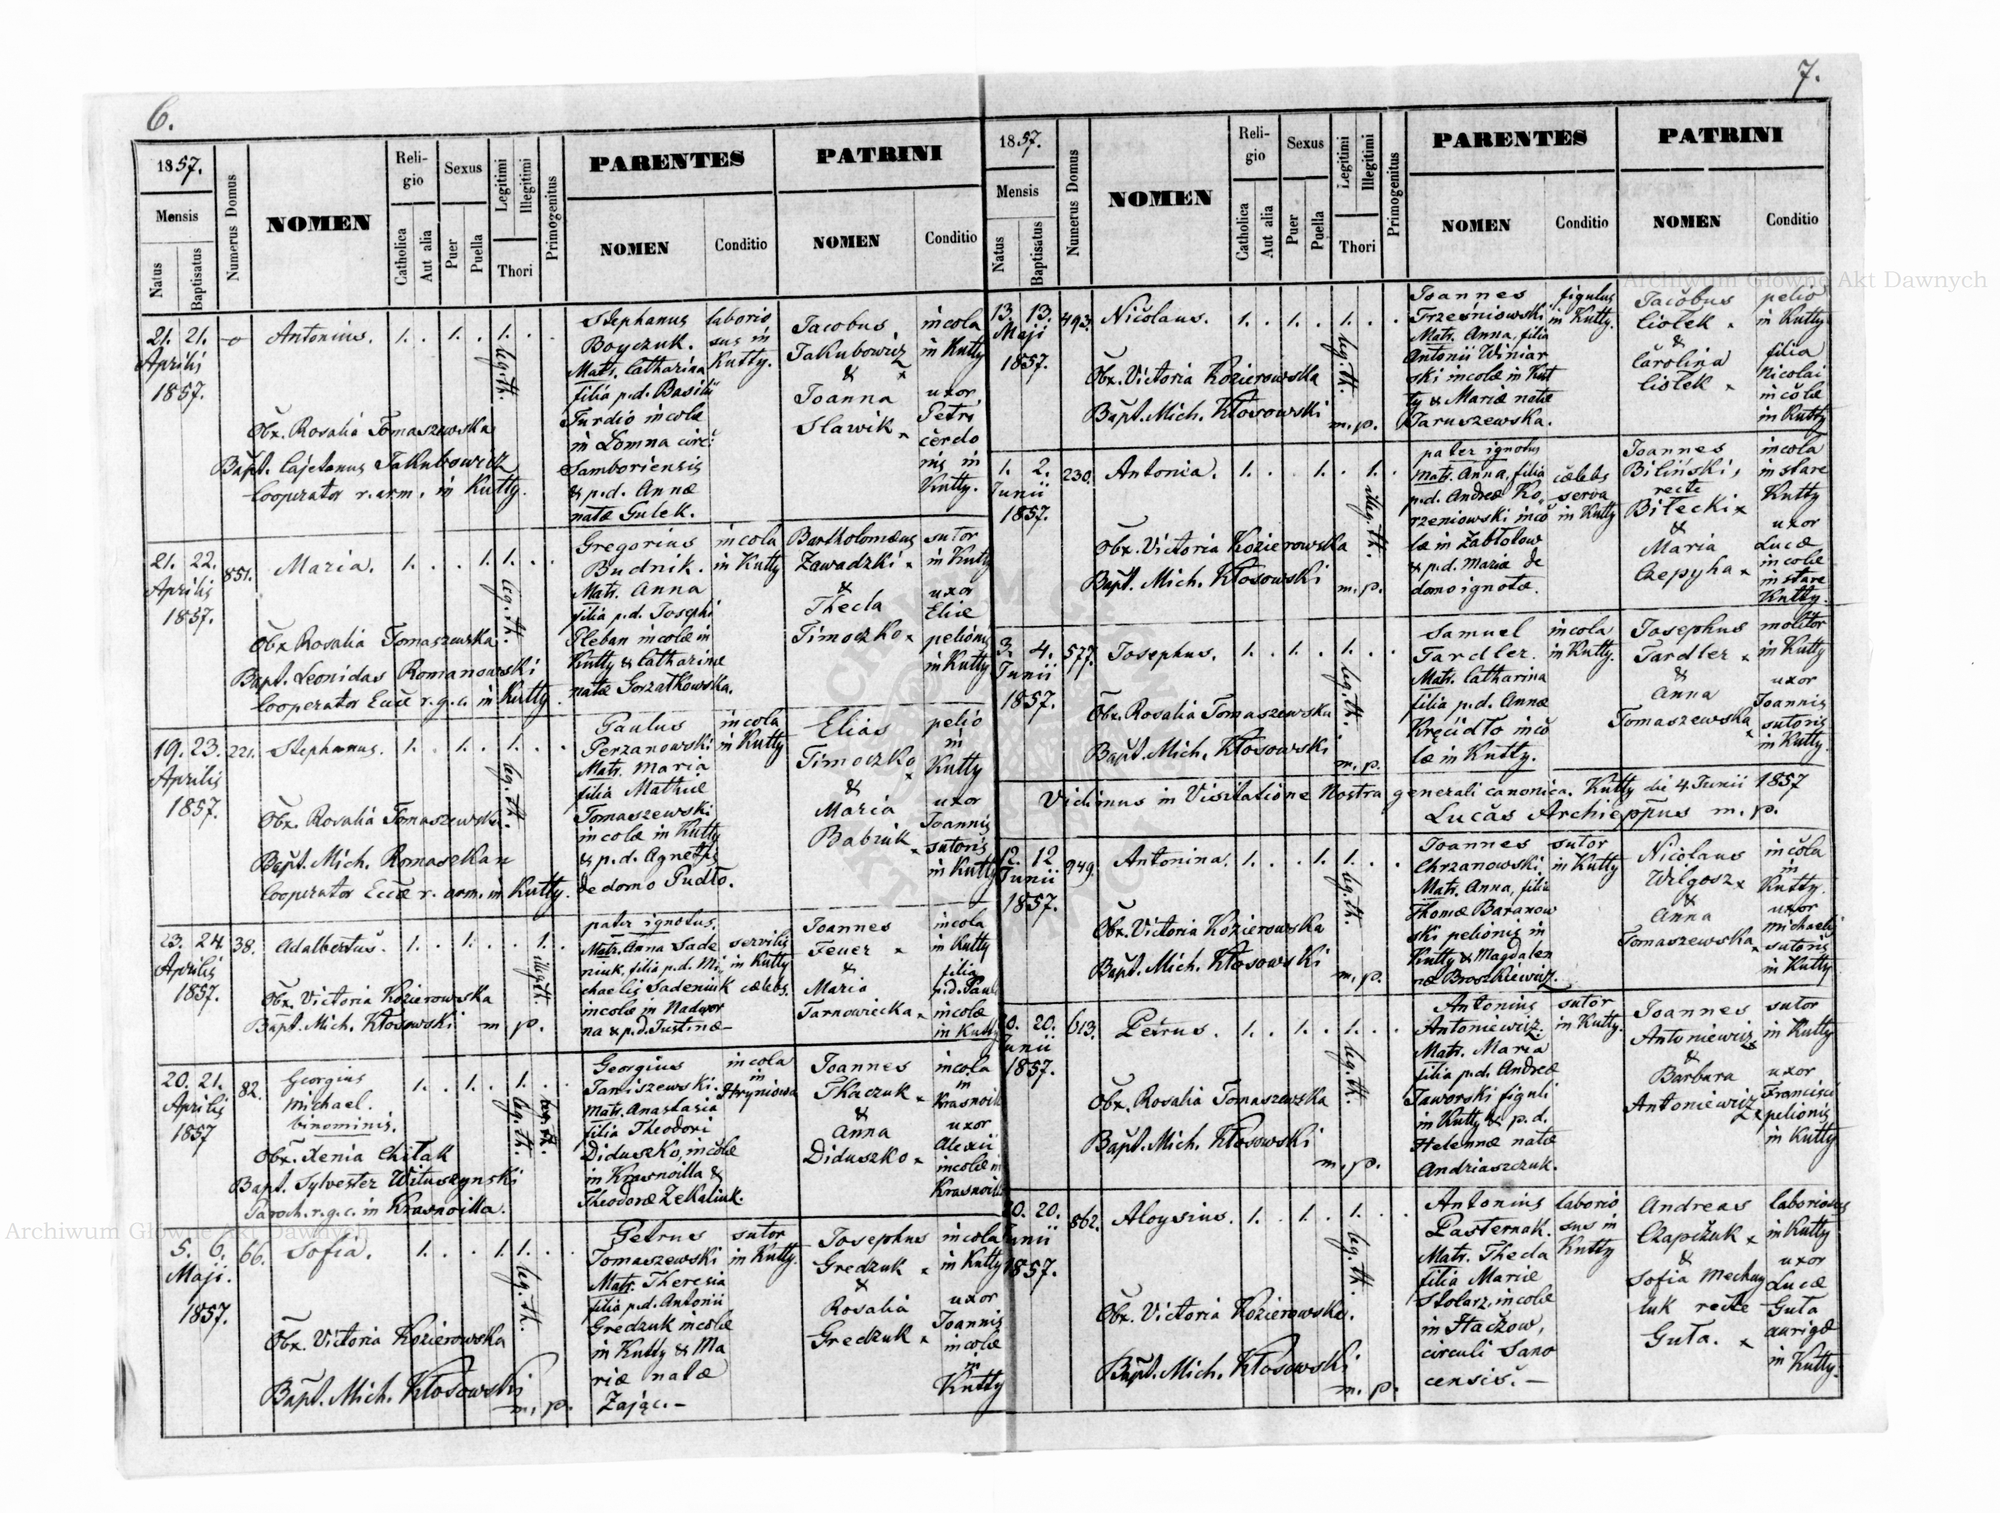 6.
1857.
Mensis
Natus
Baptisatus
Numerus Domus
NOMEN
Religio
Catholica
Aut alia
Sexus
Puer
Puella
Legitimi
Illegitimi
Thori
Primogenitus
PARENTES
NOMEN
Conditio
PATRINI
NOMEN
Conditio
21. 21.
Aprilis
1857.
Antonius. 1. . 1. . 1. . .
leg. th.
Obx. Rosalia Tomaszewska
Bapt. Cajetanus Jakubowicz
Cooperator r. arm. in Kutty.
Stephanus
Boyczuk.
Matr. Catharina
filia p.d. Basilii
Turdio incolæ
in Łomna circ:
Samboriensis
& p.d. Annæ
natæ Gulek.
laborio
sus in
Kutty.
Jacobus
Jakubowicz
&
Joanna
Slawik
incola
in Kutty
uxor
Petri
cerdo
nis in
Kutty.
21. 22.
Aprilis
1857.
851.
Maria. 1. . . 1. 1. . .
leg. th.
Obx. Rosalia Tomaszewska
Bapt. Leonidas Romanowski
Cooperator Eccæ r.g.c. in Kutty
Gregorius
Budnik.
Matr. Anna
filia p.d. Josephi
Pleban incolæ in
Kutty & Catharinæ
natæ Gorzałkowska.
incola
in Kutty
Bartholomæus
Zawadzki
&
Thecla
Timoczko
sutor
in Kutty
uxor
Eliæ
pelionis
in Kutty
19. 23.
Aprilis
1857.
221.
Stephanus. 1. . 1. . 1. . .
leg. th.
Obx. Rosalia Tomaszewska
Bapt. Mich. Romaszkan
Cooperator Eccæ r. arm. in Kutty.
Paulus
Perzanowski
Matr. Maria
filia Mathiæ
Tomaszewski
incolæ in Kutty
& p.d. Agnethis
de domo Pudło.
incola
in Kutty
Elias
Timoczko
&
Maria
Babiuk
pelio
in
Kutty
uxor
Joannis
sutoris
in Kutty
23. 24.
Aprilis
1857.
38.
Adalbertus. 1. . 1. . . 1. .
illeg. th.
Obx. Victoria Kozierowska
Bapt. Mich. Kłosowski m. p.
pater ignotus.
Matr. Anna Sade
niuk, filia p.d. Mi
chaelis Sadeniuk
incolæ in Nadwor
na & p.d. Justinæ
servilis
in Kutty
cælebs.
Joannes
Feuer
&
Maria
Tarnowiecka
incola
in Kutty
filia
p.d. Pauli
incolæ
in Kutty
20. 21.
Aprilis
1857
82.
Georgius
Michael.
binominis.
1. . 1. . 1. . .
leg. th.
leg. th.
Obx. Xenia Chiłak
Bapt. Sylvester Wituszynski
Paroch. r.g.c. in Krasnoilla.
Georgius
Janiszewski.
Matr. Anastasia
filia Theodori
Diduszko, incolæ
in Krasnoilla &
Theodoræ Zekaliuk.
incola
in
Hryniowa
Joannes
Tkaczuk
&
Anna
Diduszko
incola
in
Krasnoilla
uxor
Alexii
incolæ in
Krasnoilla
5. 6.
Maji.
1857.
66.
Sofia. 1. . . 1. 1. . .
leg. th.
Obx. Victoria Kozierowska
Bapt. Mich. Kłosowski
m. p.
Petrus
Tomaszewski
Matr. Theresia
filia p.d. Antonii
Gredzuk incolæ
in Kutty & Ma
riæ natæ
Zając.
sutor
in Kutty.
Josephus
Gredzuk
&
Rosalia
Gredzuk
incola
in Kutty
uxor
Joannis
incolæ
in
Kutty
7.
1857.
Mensis
Natus
Baptisatus
Numerus Domus
NOMEN
Religio
Catholica
Aut alia
Sexus
Puer
Puella
Legitimi
Illegitimi
Thori
Primogenitus
PARENTES
NOMEN
Conditio
PATRINI
NOMEN
Conditio
13. 13.
Maji
1857.
493.
Nicolaus. 1. . 1. . 1. . .
leg. th.
Obx. Victoria Kozierowska
Bapt. Mich. Kłosowski
m. p.
Joannes
Trześniowski
Matr. Anna, filia
Antonii Winiar
ski incolæ in Kut
ty & Mariæ natæ
Taruszewska.
figulus
in Kutty.
Jacobus
Ciołek
&
Carolina
Ciołek
pelio
in Kutty
filia
Nicolai
incolæ
in Kutty
1. 2.
Junii
1857.
230.
Antonia. 1. . . 1. . 1. .
illeg. th.
Obx. Victoria Kozierowska
Bapt. Mich. Kłosowski m. p.
pater ignotus
Matr. Anna, filia
p.d. Andreæ Ko
rzeniowski inco
læ in Zabłotow
& p.d. Mariæ de
domo ignotæ.
cælebs
serva
in Kutty
Joannes
Biliński,
recte
Bilecki
&
Maria
Czepyha
incola
in stare
Kutty
uxor
Lucæ
incolæ
in stare
Kutty.
3. 4.
Junii
1857.
577.
Josephus. 1. . 1. . 1. . .
leg. th.
Obx. Rosalia Tomaszewska
Bapt. Mich. Kłosowski
m. p.
Samuel
Tardler.
Matr. Catharina
filia p.d. Annæ
Kręcidło inco
læ in Kutty.
incola
in Kutty.
Josephus
Tardler
&
Anna
Tomaszewska
molitor
in Kutty
uxor
Joannis
sutoris
in Kutty.
Vidimus in Visitatione Nostra generali canonica. Kutty die 4. Junii 1857
Lucas Archieppus m. p.
12. 12
Junii
1857.
949.
Antonina. 1. . . 1. 1. . .
leg. th.
Obx. Victoria Kozierowska
Bapt. Mich. Kłosowski
m. p.
Joannes
Chrzanowski.
Matr. Anna, filia
Thomæ Baranow
ski pelionis in
Kutty & Magdalen
næ Broszkiewicz.
sutor
in Kutty
Nicolaus
Wilgosz
&
Anna
Tomaszewska
incola
in
Kutty.
uxor
Michaelis
sutoris
in Kutty
20. 20.
Junii
1857.
613.
Petrus. 1. . 1. . 1. . .
leg. th.
Obx. Rosalia Tomaszewska
Bapt. Mich. Kłosowski
m. p.
Antonius
Antoniewicz.
Matr. Maria
filia p.d. Andreæ
Jaworski figuli
in Kutty & p.d.
Helennæ natæ
Andriaszczuk.
sutor
in Kutty.
Joannes
Antoniewicz
&
Barbara
Antoniewicz
sutor
in Kutty
uxor
Francisci
pelionis
in Kutty
20. 20.
Junii
1857.
862.
Aloysius. 1. . 1. . 1. . .
leg. th.
Obx. Victoria Kozierowska.
Bapt. Mich. Kłosowski
m. p.
Antonius
Pasternak.
Matr. Thecla
filia Mariæ
Stolarz, incolæ
in Haczow,
circuli Sano
censis.
laborio
sus in
Kutty
Andreas
Czapczuk
&
Sofia Mechny
tuk recte
Guta.
laboriosus
in Kutty
uxor
Lucæ
Guta
aurigæ
in Kutty.
Archiwum Główne Akt Dawnych
Archiwum Główne Akt Dawnych